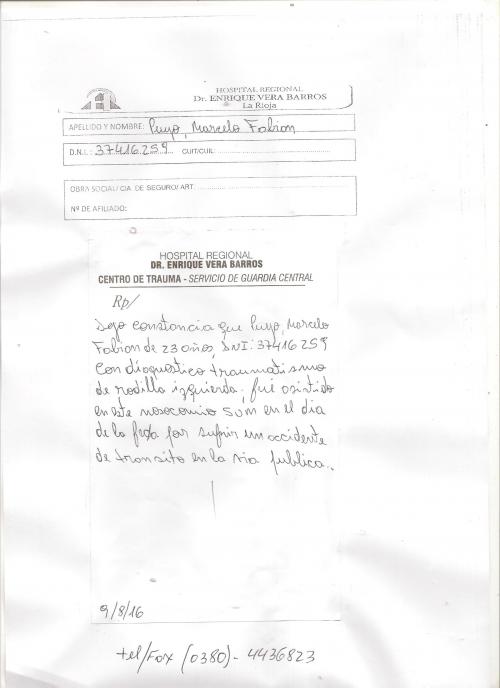 HOSPITAL REGIONAL
Dr. ENRIQUE VERA BARROS
La Rioja
APELLIDO Y NOMBRE: Puyo, Marcelo Fabian
D.N.I.: 37416.259 CUIT/CUIL:
OBRA SOCIAL/CIA. DE SEGURO/ART.
Nº DE AFILIADO:
HOSPITAL REGIONAL
DR. ENRIQUE VERA BARROS
CENTRO DE TRAUMA - SERVICIO DE GUARDIA CENTRAL
Rp/
Dejo constancia que Puyo, Marcelo
Fabian de 23 años, DNI: 37416259
Con diagnostico traumatismo
de rodilla izquierda, fué asistido
en este nosocomio en el dia
de la fecha por sufrir un accidente
de transito en la via publica.
9/8/16
tel/Fax (0380)- 4436823